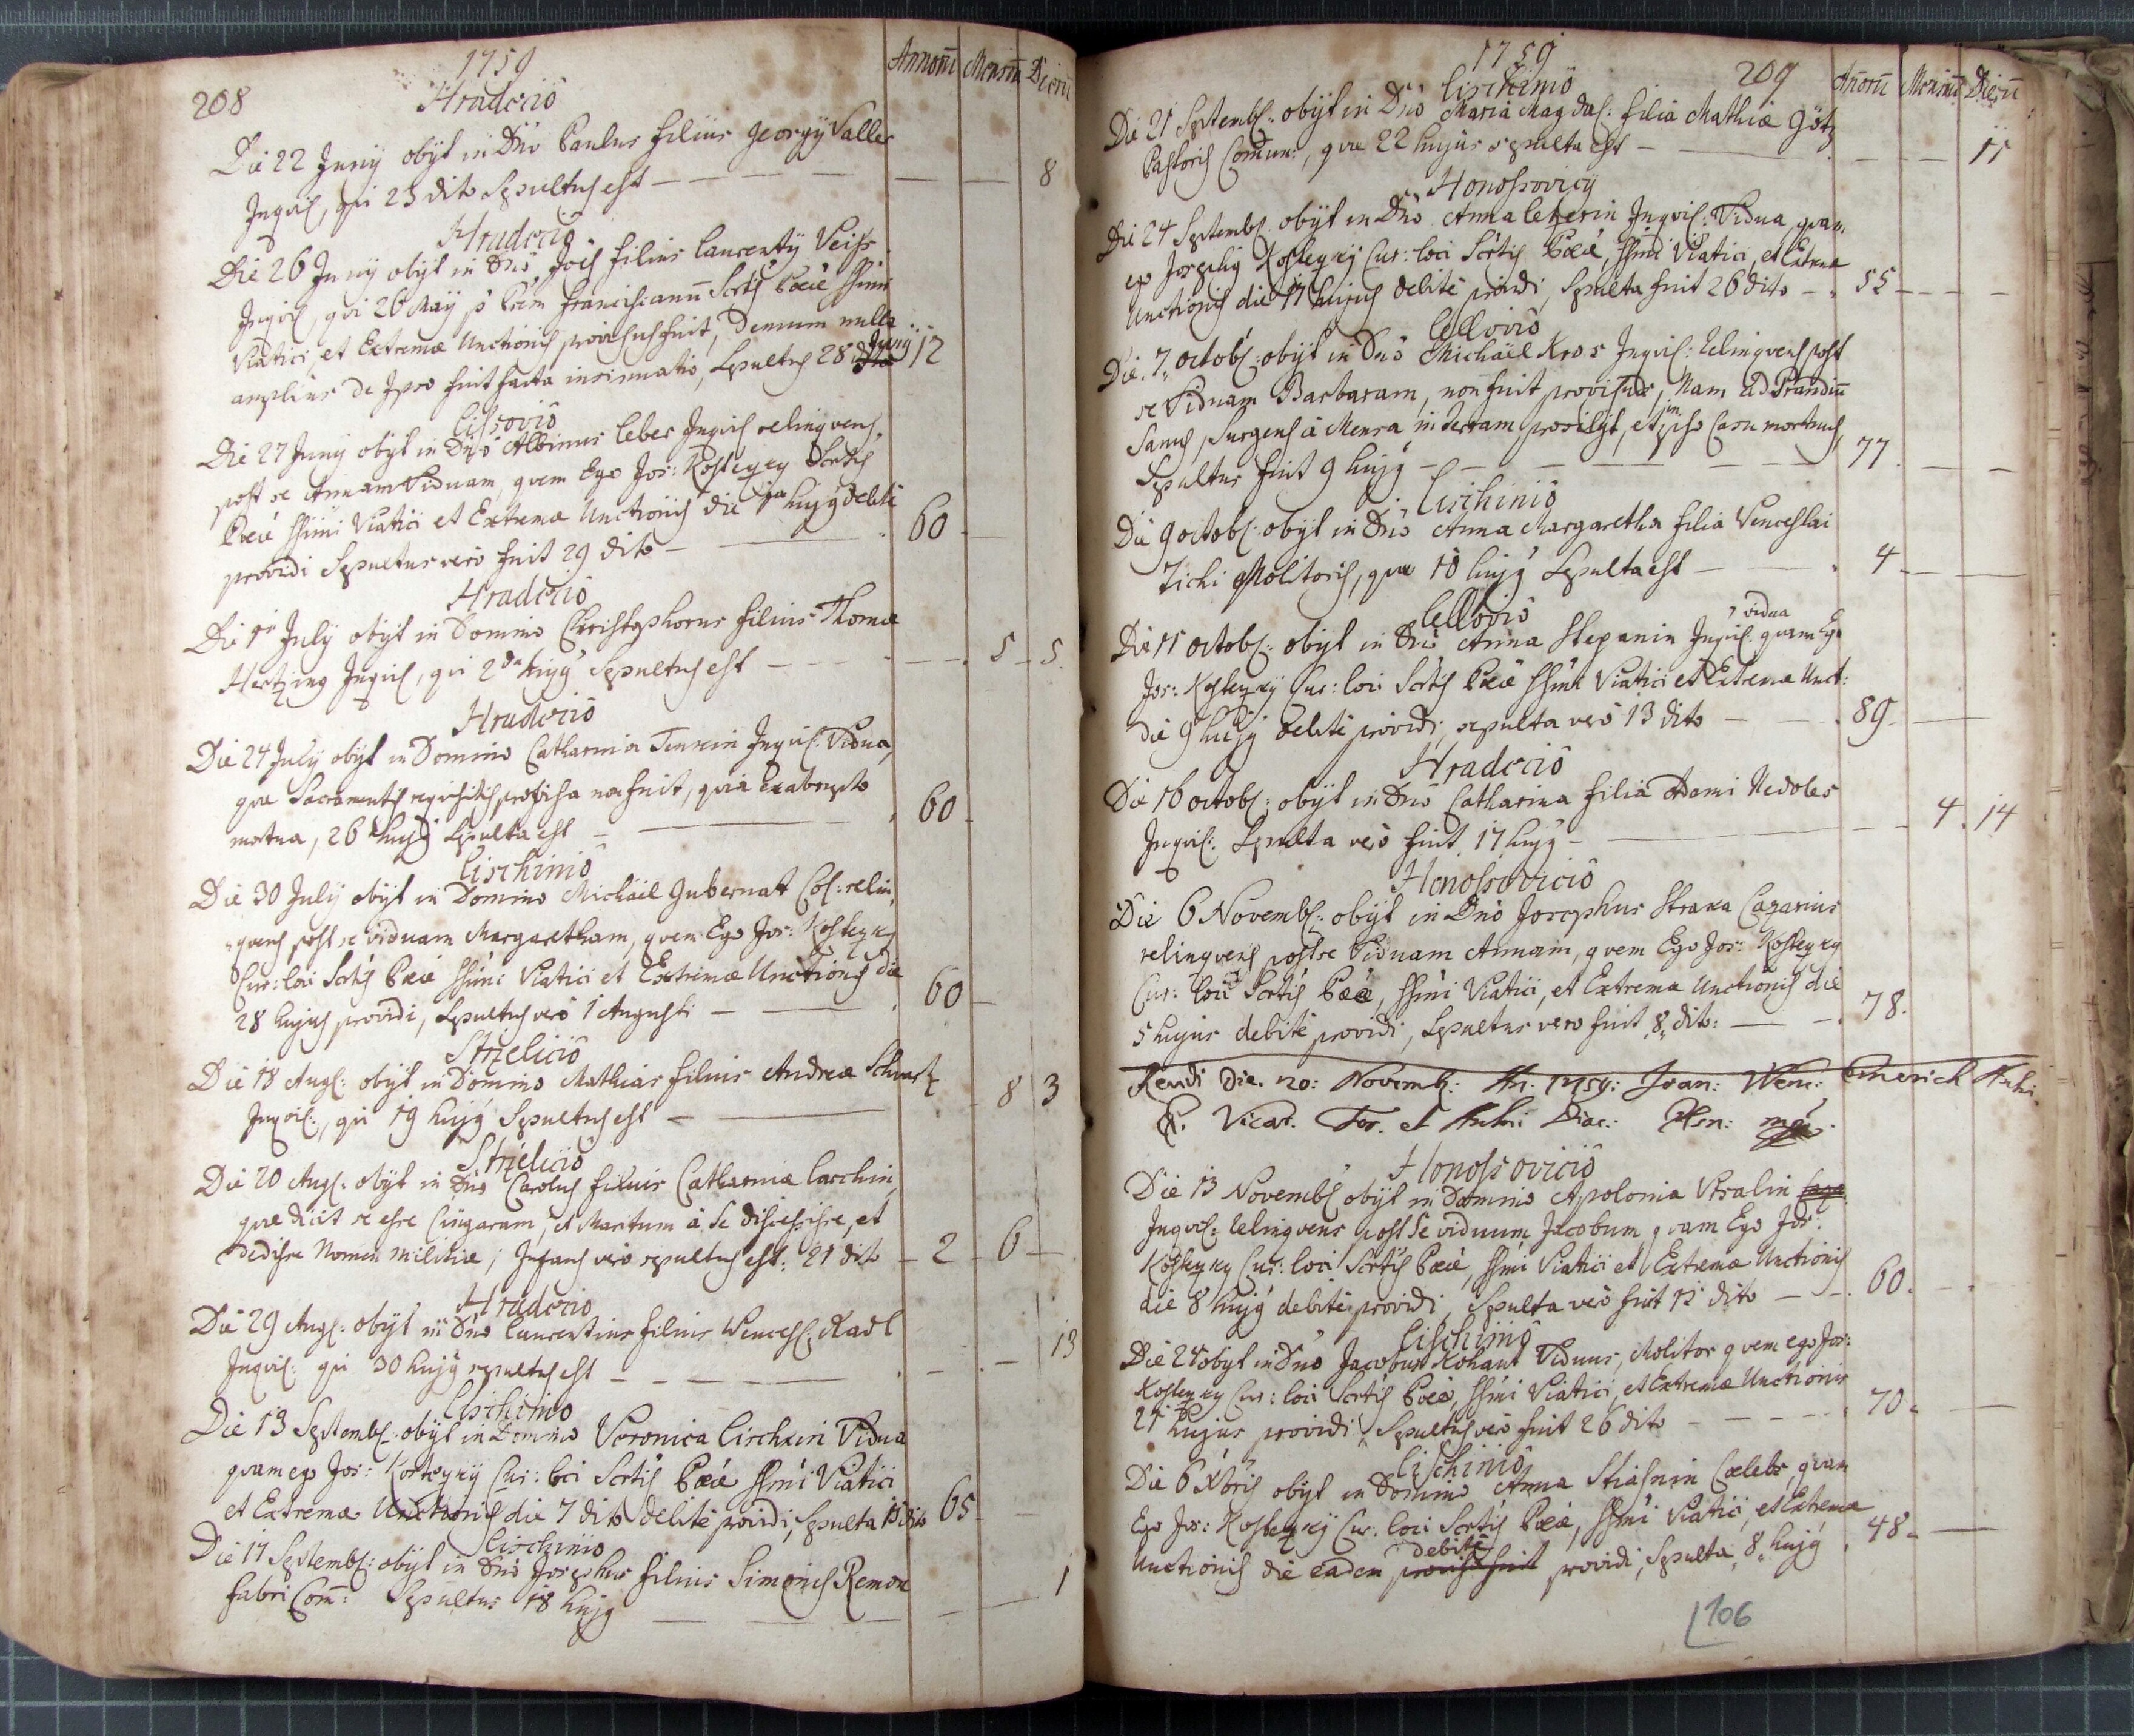 208
1759
Annorū Mensiū Dierū
Hradcio
Die 22 Juny obyt in Dño Paulus filius Georgÿ Valler
Inqvil, qvi 23 dito Sepultus est — 8
Hradcio
Die 26 Juny obyt in Dño Joes filius Laurentÿ Veiss
Inqvil, qvi 26 Maÿ p Prem Franciscanū Scrtis Pœæ SSimi
Viatici, et Extremæ Unctionis provisus fuit, Demum nulla
amplius de Ipso fuit facta insinuatio, Sepultus 28 Juny 12
Cissovio
Die 27 Juny obyt in Dño Albinus Leber Inqvil relinqvens
post se Annam Viduam, qvem Ego Jos: Kosteyzky Scrtis
Pœæ SSimi Viatici et Extremæ Unctionis die 1ma hujg debite
providi Sepultus vero fuit 29 dito — 60
Hradcio
Die 1a July obyt in Domino Christophorus filius Thomæ
Hertzing Inqvil, qvi 2da hujg Sepultus est — 5 5
Hradcio
Die 24 July obyt in Domino Catharina Inqvil: Vidua,
qvæ Sacramentis reqvisitis provisa non fuit, qvia Exabrupto
mortua, 26 hujg Sepulta est — 60
Cischinio
Die 30 July obyt in Domino Michäel Gubernat Col: relin,
qvens post se viduam Margaretham, qvem Ego Jos: Kosteyzky
Cur: loci Scrtis Pœæ SSimi Viatici et Extremæ Unctionis die
28 hujus providi, Sepultus vero 1 Augusti — 60
Strzelicio
Die 18 Aug: obyt in Domino Mathias filius Andreæ Schvartz
Inqvil:, qvi 19 hujg Sepultus est — 8 3
Strzelicio
Die 20 Aug: obyt in Dño Carolus filius Catharinæ Larchin,
qvæ dicit se esse Cingaram, et Maritum à se discessisse, et
dedisse Nomen militiæ; Infans vero sepultus est: 21 dito — 2 — 6 —
Hradcio
Die 29 Aug: obyt in Dño Laurentius filius Wencesl: Kadl
Inqvil: qvi 30 hujg sepultus est — 13
Cischinio
Die 13 Septemb: obyt in Domino Veronica Circhziri Vidua
qvam ego Jos: Kosteyzky Cur: loci Scrtis Pœæ SSimi Viatici
et Extremæ Unctionis die 7 dito debite providi, Sepulta 15 dito 65
Cischinio
Die 17 Septemb: obyt in Dño Josephus filius Simonis Remon
fabri Com: Sepultus 18 hujg — 1
1759
209
Añorū Mensiū Dierū
Cischinio
Die 21 Septemb: obyt in Dño Maria Magdal: filia Mathiæ Götz
Pastoris Comun:, qvæ 22 hujus sepulta est — 11
Honossovicÿ
Die 24 Septemb: obyt in Dño Anna Inqvil: Vidua, qvam
ego Josephg Kosteyzkÿ Cur: loci Scrtis Pœæ, SSimi Viatici, et Extremæ
Unctionis die 17 hujus debite providi, Sepulta fuit 26 dito — 55
Cellovio
Die 7 octob: obyt in Dño Michäel Kros Inqvil: relinqvens post
se Viduam Barbaram, non fuit provisus, Nam ad Prandiū
Sanus, Surgens à Mensa in terram prosilyt, et in ipso Casu mortuus,
Sepultus fuit 9 hujg — 77
Cischinio
Die 9 octob: obyt in Dño Anna Margaretha filia Venceslai
Zichi Molitoris, qvæ 10 hujg Sepulta est — 4
Cellovio
Die 11 octob: obyt in Dño Anna Stepanin Inqvil. vidua qvam Ego
Jos: Kosteyzkÿ Cur: loci Scrtis Pœæ SSimi Viatici et Extremæ Unct:
die 9 hujg debite providi, sepulta vero 13 dito — 89
Hradcio
Die 16 octob: obyt in Dño Catharina filia Adami Nedoles
Inqvil: Sepulta vero fuit 17 hujg — 4 14
Honossovicio
Die 6 Novemb: obyt in Dño Josephus Straka Casarius
relinqvens post se Viduam Annam, qvem Ego Jos: Kosteyzky
Cur: loci Scrtis Pœæ, SSimi Viatici, et Extrema Unctionis die
5 hujus debite providi, Sepultus vero fuit 8 dito: — 78
Revidi Die. 20: Novemb: An. 1759: Joan: Wenc: Emerich Archi.
P. Vicar. For. et Archi Diac: Plsn: mp
Honossovicio
Die 13 Novemb obyt in Domino Apolonia Vralin
Inqvil: relinqvens post Se viduum Jacobum, qvam Ego Jos:
Kosteyzky Cur: loci Scrtis Pœæ, SSimi Viatici et Extremæ Unctionis
die 8 hujg debite providi, Sepulta vero fuit 15 dito — 60
Cischinio
Die 24 obyt in Dño Jacobus Kohaut Viduus, Molitor qvem ego Jos:
Kosteyzky Cur: loci Scrtis Pœæ, SSimi Viatici, et Extremæ Unctionis
21 hujus providi, Sepultus vero fuit 26 dito — 70
Cischinio
Die 6 Xbris obyt in Domino Anna Stiasnin Cœlebs, qvam
Ego Jos: Kosteyzkÿ Cur: loci Scrtis Pœæ, SSimi Viatici, et Extremæ
Unctionis die eadem debite providi, Sepulta 8 hujg — 48
106